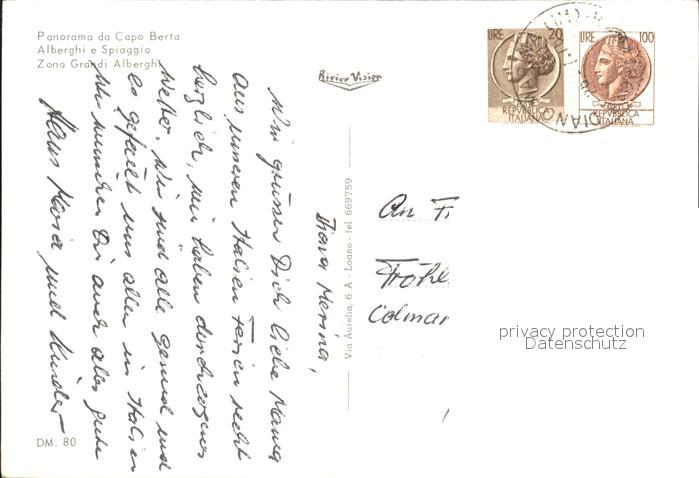 Panorama da Capo Berta
Alberghi e Spiaggia
Zona Grandi Alberghi
Rivier Vision
LIRE 20
REPVBBLICA
ITALIANA
LIRE 100
REPVBBLICA
ITALIANA
DIANO
Via Aurelia, 6 A - Loano - tel. 669759
Diano Marina,
Wir grüssen Dich liebe Mama
aus unseren Italien Ferien recht
herzlich, wir haben durchwegs
Wetter. Wir sind alle gesund und
es gefällt uns allen in Italien
Wir wünschen Dir auch alles gute
Hans Maria und Kinder
An Fr
Fröhl
Colmar
DM. 80
privacy protection
Datenschutz